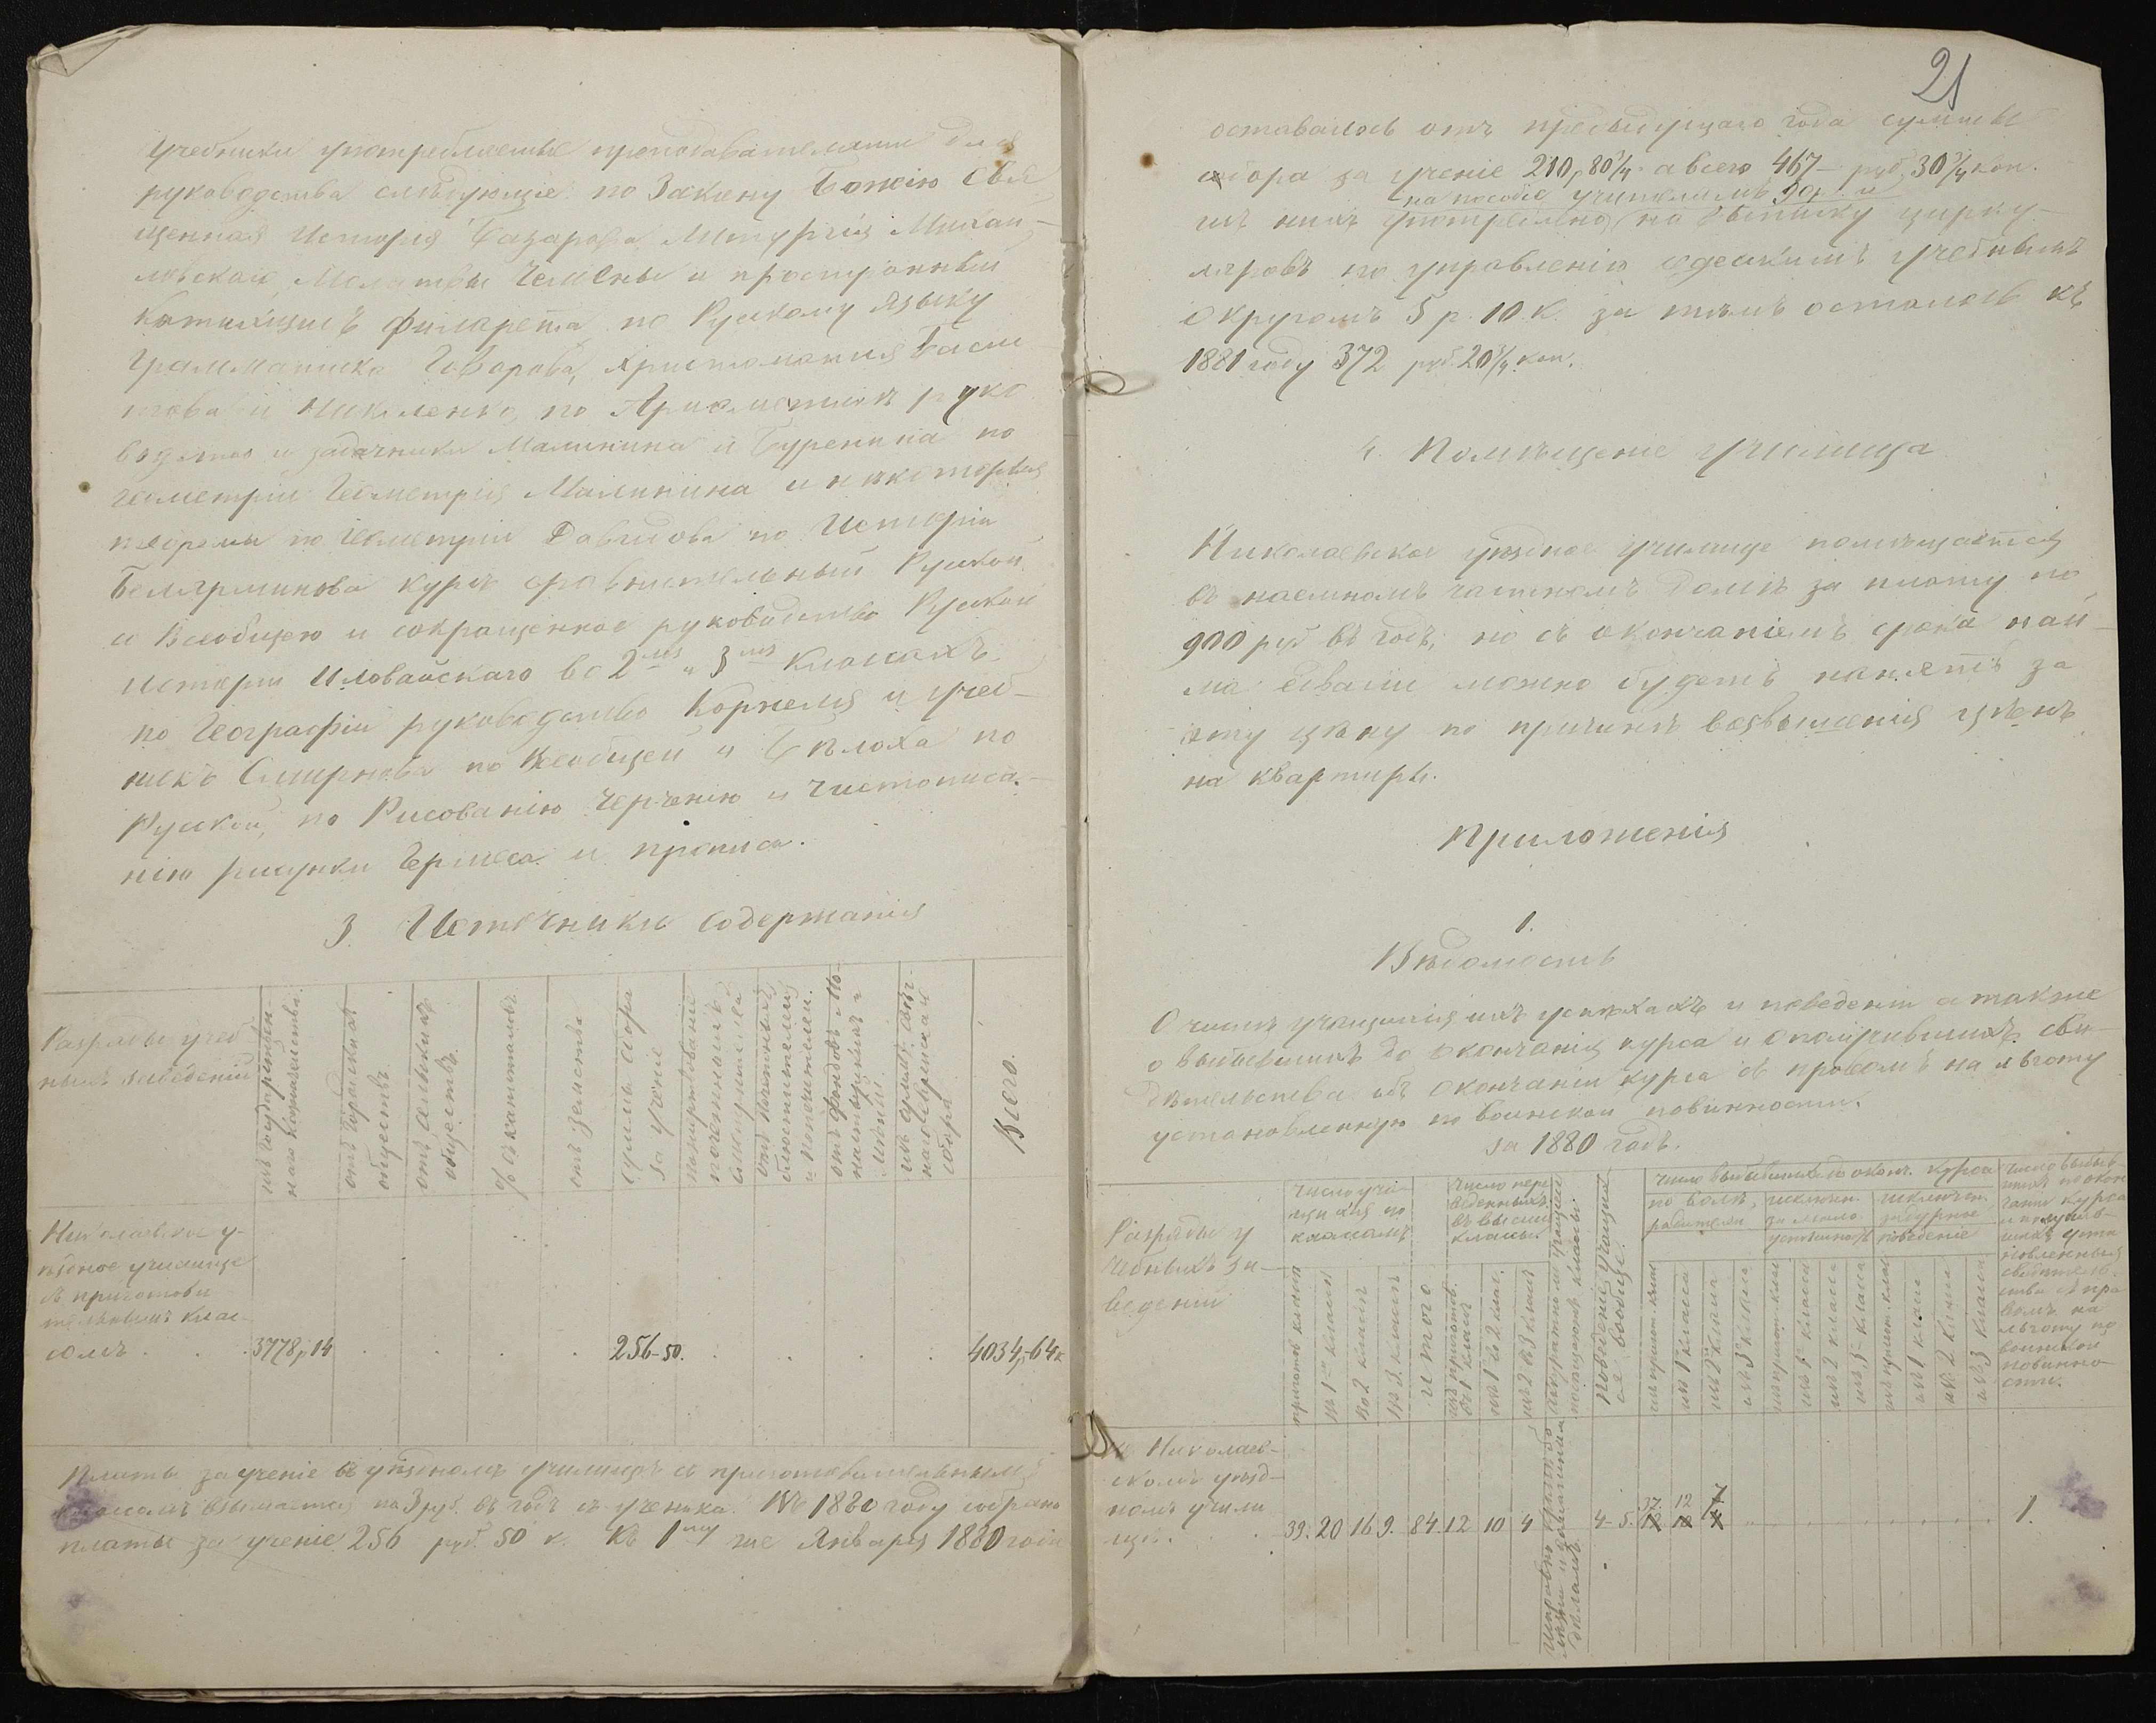 Учебники употребляемые преподавателями для
руководства следующие: по Закону Божію Свя-
щенная Исторія Базарова, Литургія Михай-
ловскаго, Молитвы и пространный
Катихизисъ Филарета, по Русскому Языку
Грамматика Говорова, Христоматія Басис-
това и Николенко, по Ариѳметикѣ руко
водство и задачники Малинина и Буренина по
Геометріи Геометрія Малинина и нѣкоторыя
теоремы по Геометріи Давидова по Исторіи
Беллярминова курсъ сравнительный Русской
и Всеобщею и сокращенное руководство Русской
исторіи Иловайскаго во 2мъ и 3мъ классахъ
по Географіи руководство Корнеля и учеб-
никъ Смирнова по Всеобщей и Бѣлоха по
Русской, по Рисованію Черченію и Чистописа-
нію рисунки Гермеса и прописи.
3. Источники содержанія
Разряды учеб
ныхъ заведеній
изъ Государствен-
наго Казначейства.
отъ Городскихъ
обществъ
отъ сельскихъ
обществъ.
% съ капиталовъ
отъ земства
сумма сбора
за ученіе
пожертвованіе
почетнымъ
смотрителемъ
отъ почетныхъ
блюстителей
и попечителей.
отъ фондовъ и мо-
настырскихъ
имѣній.
изъ суммъ свѣч-
наго
сбора
Всего.
Николаевское у-
ѣздное училище
съ приготови
тельнымъ клас-
сомъ . . . 3778 р 14 . . . . . 256-50. . . . . 4034 р-64 к
Платы за ученіе въ уѣздномъ училищѣ съ приготовительнымъ
классомъ взымается по 3 руб. въ годъ съ ученика. Въ 1880 году собрано
платы за ученіе 256 руб. 50 к. Къ 1му же Января 1880 года
21
оставалось отъ предыдущаго года суммы
сбора за ученіе 210 р 80 3/4 а всего 467 руб 30 3/4 коп.
на пособіе учителямъ 90 р. и
изъ нихъ употреблено на выписку цирку-
ляровъ по управленію Одесскимъ Учебнымъ
Округомъ 5 р. 10 к. за тѣмъ осталось къ
1881 году 372 руб. 20 3/4 коп.
4. Помѣщеніе училища
Николаевское уѣздное училище помѣщается
въ наемномъ частномъ домѣ за плату по
900 руб въ годъ, но съ окончаніемъ срока най-
ма едвали можно будетъ нанять за
эту цѣну по причинѣ возвышенія цѣнъ
на квартиры.
Приложенія
1.
Вѣдомость
О числѣ учащихся ихъ успѣхахъ и поведеніи а также
о выбывшихъ до окончанія курса и о получившихъ сви-
дѣтельства объ окончаніи курса съ правомъ на льготу
установленную по воинской повинности.
за 1880 годъ.
Разряды у
чебныхъ за-
веденій
Число уча-
щихся по
классамъ
пригот. классѣ
Въ 1мъ классѣ
Во 2 классѣ
Въ 3. классѣ
Итого
Число пере
веденныхъ
въ высшіе
классы.
изъ приготов.
въ 1 классъ
изъ 1 во 2 клас.
изъ 2 въ 3 классъ
посѣщаютъ классы.
Поведеніе учащихся
вообще.
Число выбывшихъ до оконч. курса
по волѣ
родителей
исключен.
за мало
успѣшность
исключен.
за дурное
поведеніе
изъ пригот. клас
изъ 1 класса
изъ 2 класса
изъ 3 класса
изъ пригот. клас
изъ 1 класса
изъ 2 класса
изъ 3 класса
изъ пригот. клас
изъ 1 класса
изъ 2 класса
изъ 3 класса
Число выбыв-
шихъ по окон
чаніи курса
и получив-
шихъ уста
новленныя
свидѣтель-
ства съ пра
вомъ на
льготу по
воинской
повинно-
сти.
Въ Николаев-
скомъ уѣзд-
номъ учили
щѣ. . . 39. 20 16 9. 84. 12 10 4
Исправно
4-5. 37. 12 7 1.